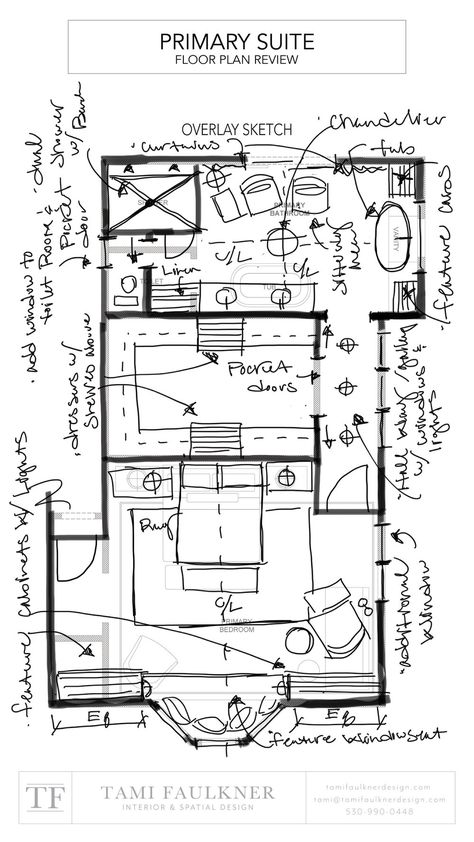 PRIMARY SUITE
FLOOR PLAN REVIEW
OVERLAY SKETCH
· chandelier
· curtains
tub
· dual
shower
w/ Bench
· add window to
toilet Room &
Pocket
door
SHOWER
PRIMARY
BATHROOM
VANITY
· feature cabs
Sitting
Area
C/L
C/L
Linen
TOILET
TUB
· dressers w/
shelves above
Pocket
doors
· Hall way / gallery
w/ windows &
lights
Rug
C/L
PRIMARY
BEDROOM
· additional
window
· feature cabinets w/ lights
EQ
EQ
· feature window seat
TF
TAMI FAULKNER
INTERIOR & SPATIAL DESIGN
tamifaulknerdesign.com
tami@tamifaulknerdesign.com
530-990-0448